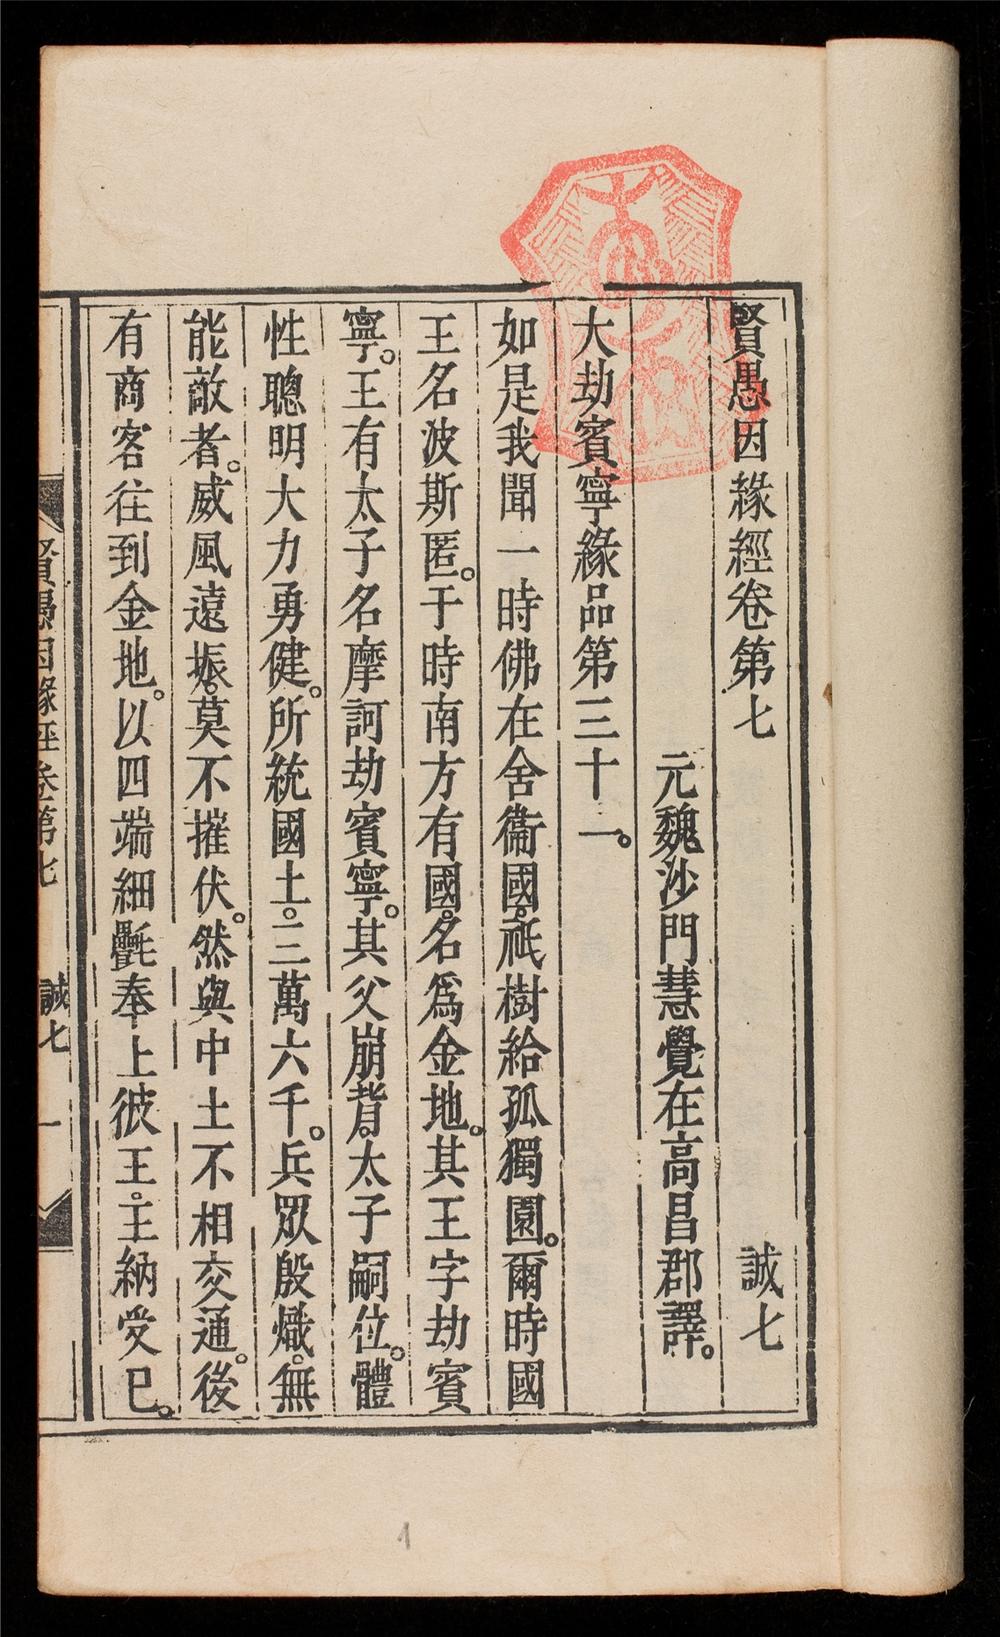 賢愚因緣經卷第七 誠七
元魏沙門慧覺在高昌郡譯。
大劫賓寧緣品第三十一。
如是我聞一時佛在舍衞國。祇樹給孤獨園。爾時國
王名波斯匿。于時南方有國。名爲金地。其王字劫賓
寧。王有太子名摩訶劫賓寧。其父崩背。太子嗣位。體
性聰明大力勇健。所統國土。三萬六千。兵眾殷熾。無
能敵者。威風遠振。莫不摧伏。然與中土不相交通。後
有商客往到金地。以四端細㲲奉上彼王。王納受已。
賢愚因緣經卷第七 誠七 一
1